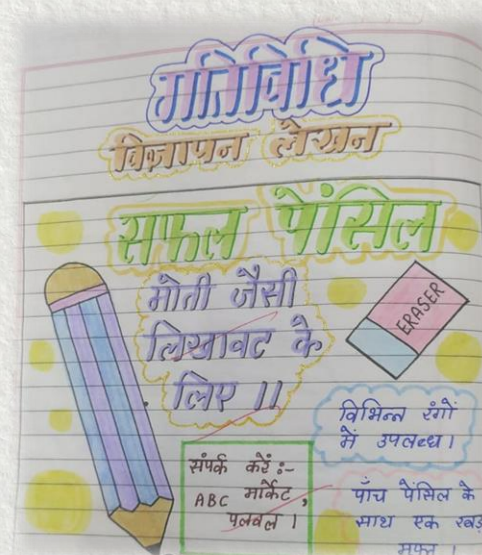 गतिविधि
विज्ञापन लेखन
सफल पेंसिल
मोती जैसी
लिखावट के
लिए !!
ERASER
विभिन्न रंगों
में उपलब्ध।
संपर्क करें :-
ABC मार्केट,
पलवल ।
पाँच पेंसिल के
साथ एक रबड़
मुफ्त ।